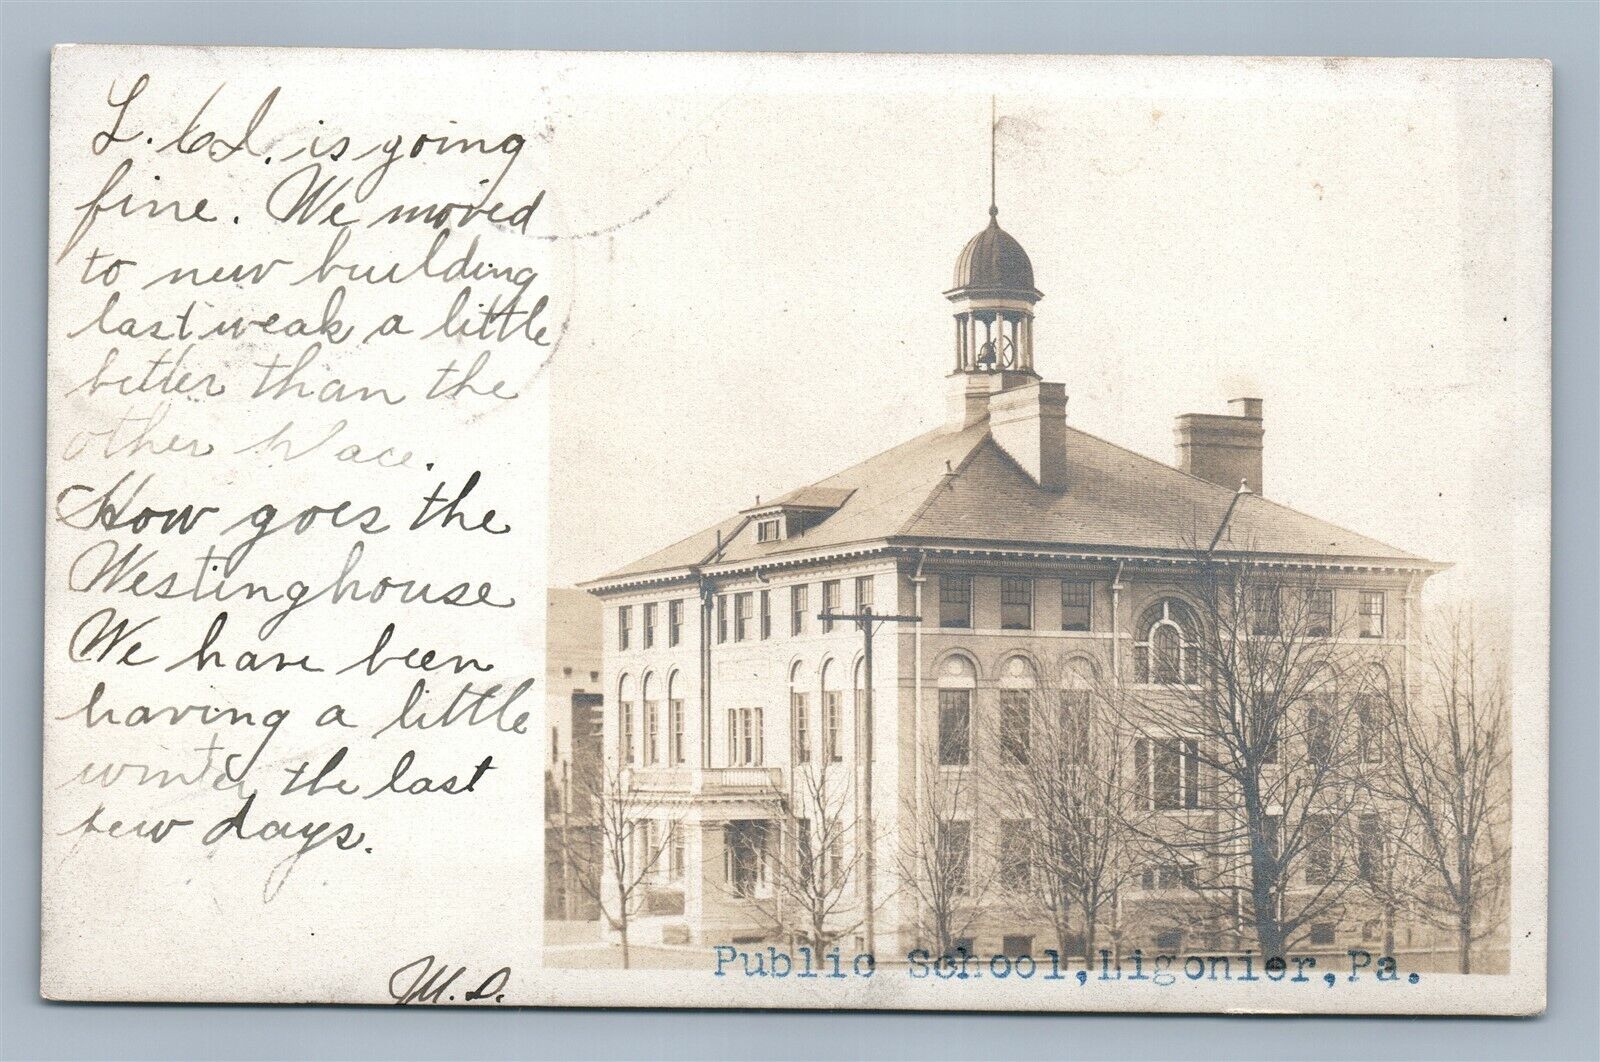 is going
fine. We moved
to new building
last weak a little
better than the
other place.
How goes the
Westinghouse
We have been
having a little
winter the last
few days.
M.D.
Public School,Ligonier,Pa.